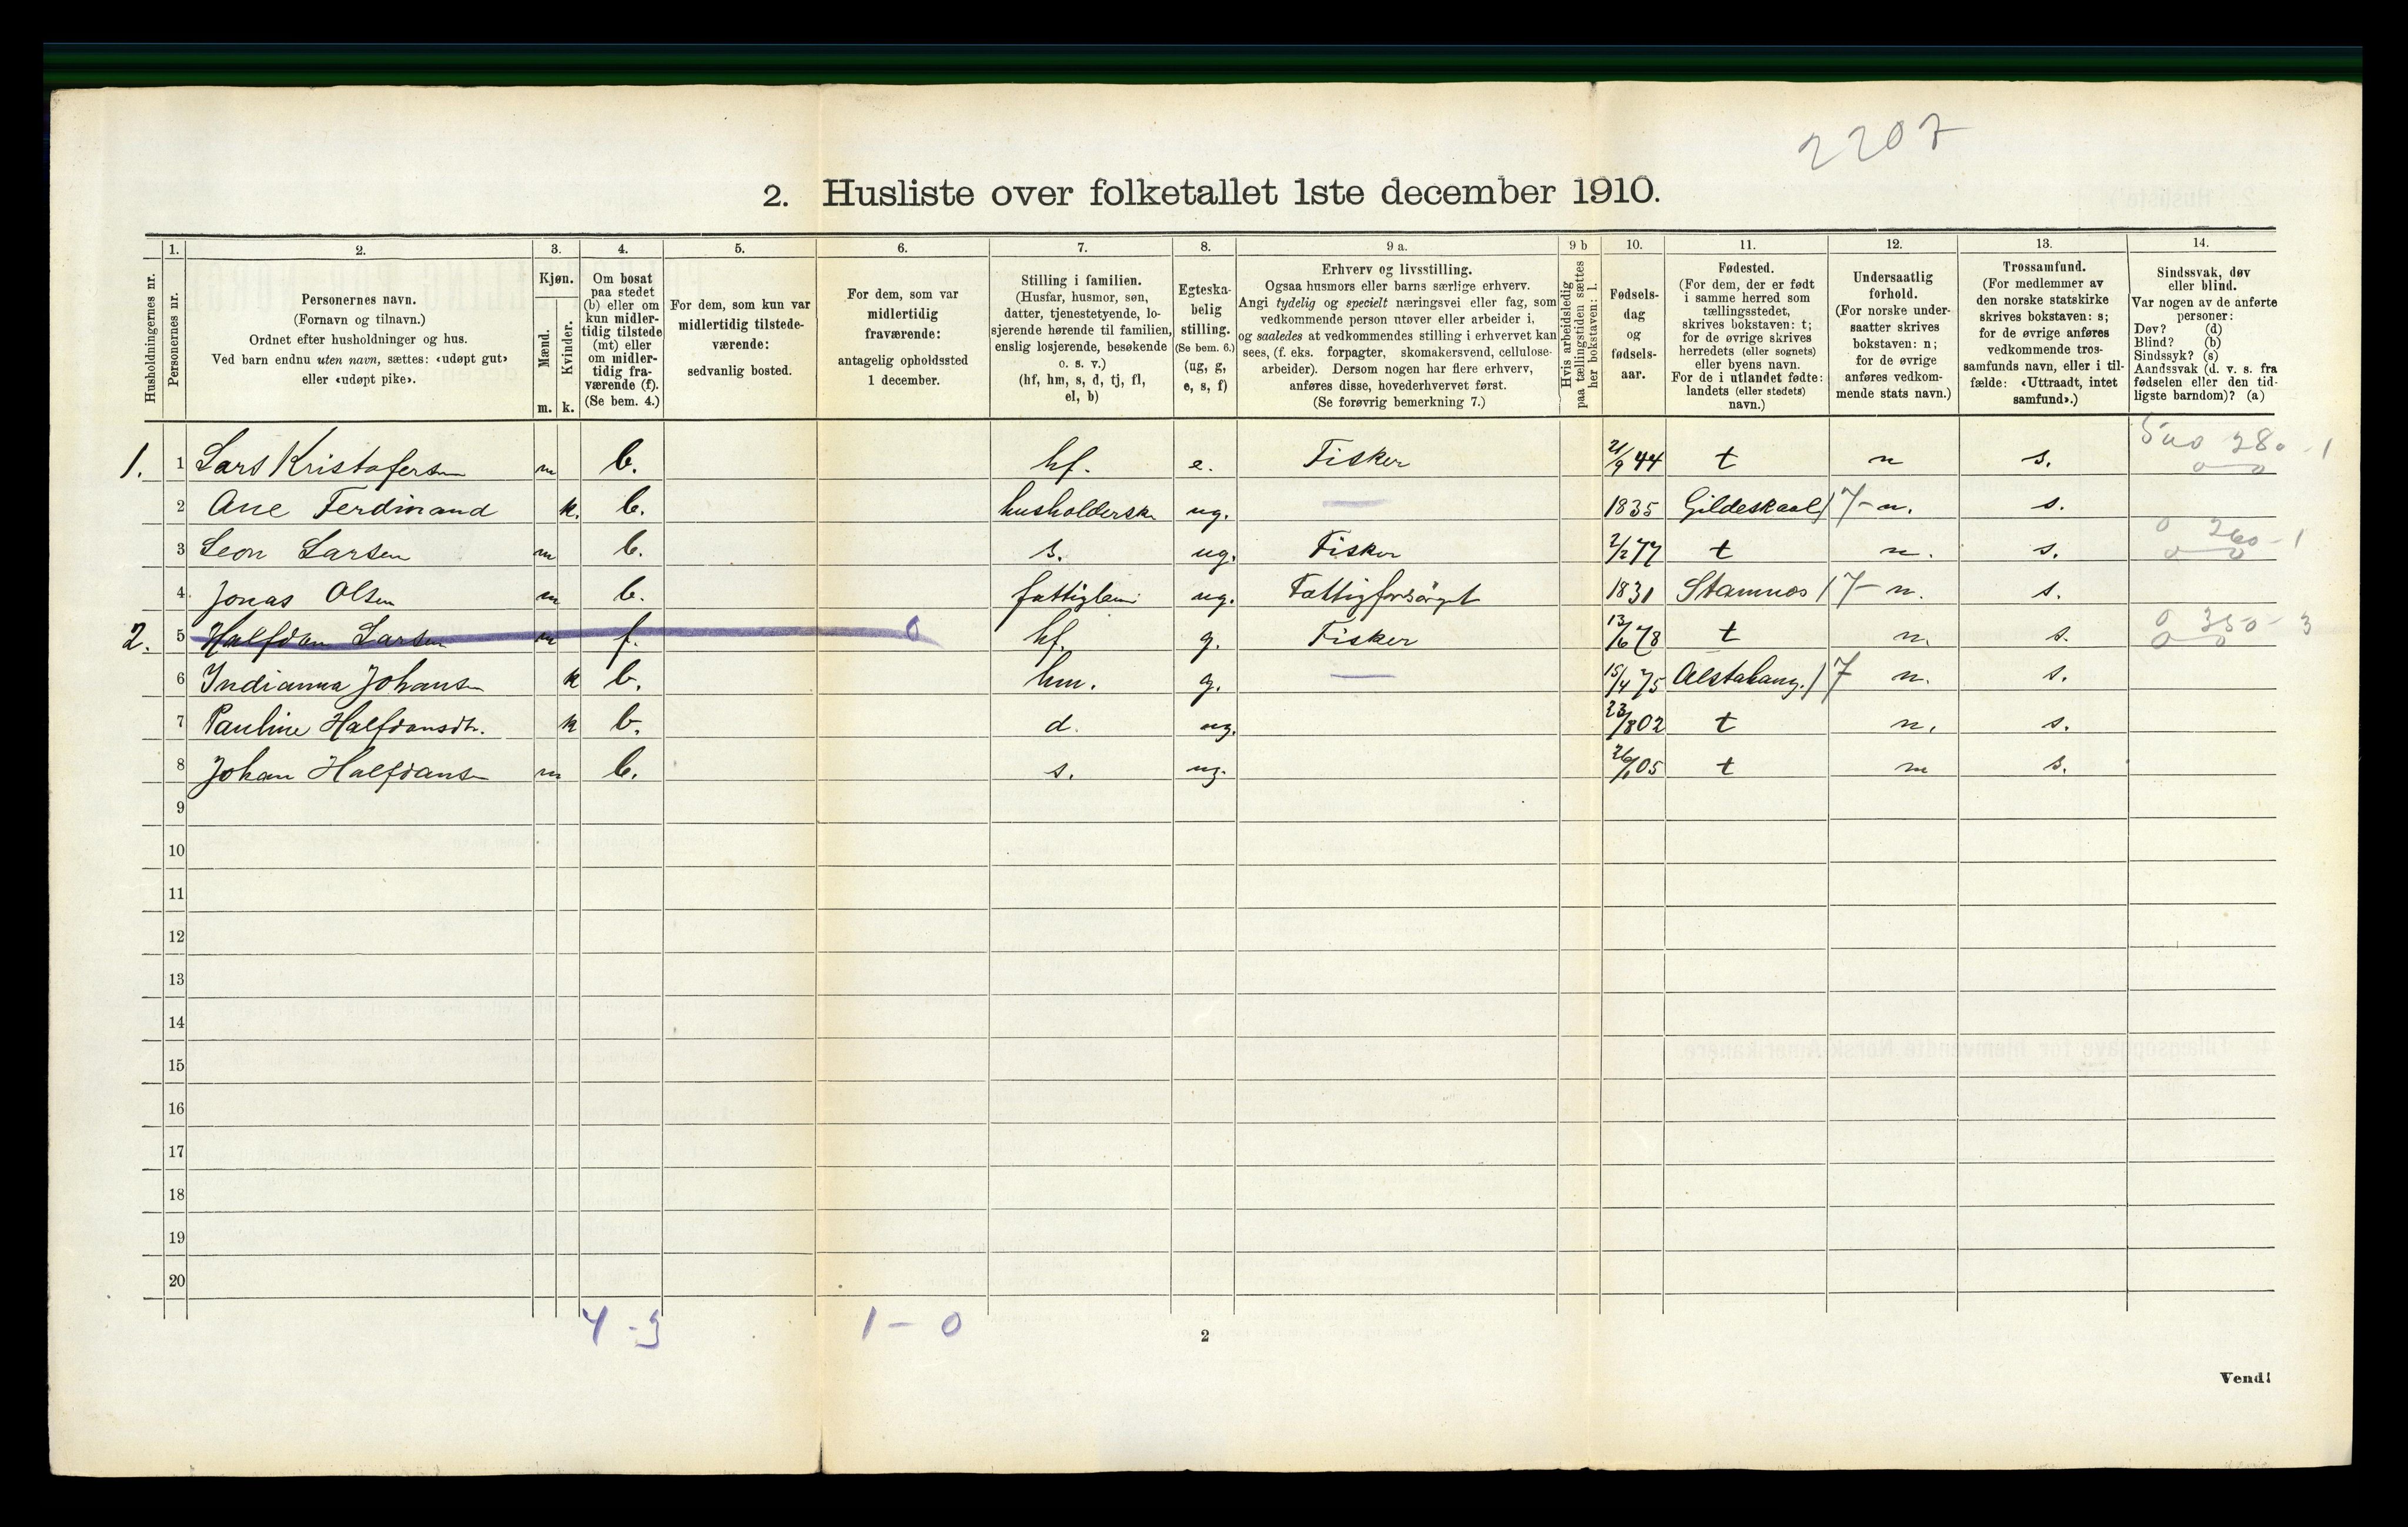 2207
2. Husliste over folketallet 1ste december 1910.
Husholdningernes nr.
1.
Personernes nr.
2.
Personernes navn.
(Fornavn og tilnavn.)
Ordnet efter husholdninger og hus.
Ved barn endnu uten navn, sættes: «udøpt gut»
eller «udøpt pike».
3.
Kjøn.
Mænd.
Kvinder.
m. k.
4.
Om bosat
paa stedet
(b) eller om
kun midler-
tidig tilstede
(mt) eller
om midler-
tidig fra-
værende (f).
(Se bem. 4.)
5.
For dem, som kun var
midlertidig tilstede-
værende:
sedvanlig bosted.
6.
For dem, som var
midlertidig
fraværende:
antagelig opholdssted
1 december.
7.
Stilling i familien.
(Husfar, husmor, søn,
datter, tjenestetyende, lo-
sjerende hørende til familien,
enslig losjerende, besøkende
o. s. v.)
(hf, hm, s, d, tj, fl,
el, b)
8.
Egteska-
belig
stilling.
(Se bem. 6.)
(ug, g,
e, s, f)
9 a.
Erhverv og livsstilling.
Ogsaa husmors eller barns særlige erhverv.
Angi tydelig og specielt næringsvei eller fag, som
vedkommende person utøver eller arbeider i,
og saaledes at vedkommendes stilling i erhvervet kan
sees, (f. eks. forpagter, skomakersvend, cellulose-
arbeider). Dersom nogen har flere erhverv,
anføres disse, hovederhvervet først.
(Se forøvrig bemerkning 7.)
9 b
Hvis arbeidsledig
paa tællingstiden sættes
her bokstaven: l.
10.
Fødsels-
dag
og
fødsels-
aar.
11.
Fødested.
(For dem, der er født
i samme herred som
tællingsstedet,
skrives bokstaven: t;
for de øvrige skrives
herredets (eller sognets)
eller byens navn.
For de i utlandet fødte:
landets (eller stedets)
navn.)
12.
Undersaatlig
forhold.
(For norske under-
saatter skrives
bokstaven: n;
for de øvrige
anføres vedkom-
mende stats navn.)
13.
Trossamfund.
(For medlemmer av
den norske statskirke
skrives bokstaven: s;
for de øvrige anføres
vedkommende tros-
samfunds navn, eller i til-
fælde: «Uttraadt, intet
samfund».)
14.
Sindssvak, døv
eller blind.
Var nogen av de anførte
personer:
Døv? (d)
Blind? (b)
Sindssyk? (s)
Aandssvak (d. v. s. fra
fødselen eller den tid-
ligste barndom)? (a)
1. 1 Lars Kristofersen m b. hf. e. Fisker 21/9 44 t n s. 500 280 - 1
2 Ane Ferdinand k. b. husholderske ug. — 1835 Gildeskaal 7 - n. s.
3 Leon Larsen m b. s. ug. Fisker 2/2 77 t n. s. 0 260 - 1
4 Jonas Olsen m b. fattiglem ug. Fattigforsörget 1831 Stamnes 7 - n. s.
2. 5 Halfdan Larsen m f. 0 hf. g. Fisker 13/6 78 t n. s. 0 350 - 3
6 Indianna Johansen k b. hm. g. — 15/4 75 Alstahaug. 7 n. s.
7 Pauline Halfdansdtr. k b. d. ug. 23/8 02 t n. s.
8 Johan Halfdansen m b. s. ug. 05 t n s.
9
10
11
12
13
14
15
16
17
18
19
20
4 - 3 1 - 0
2
Vend!